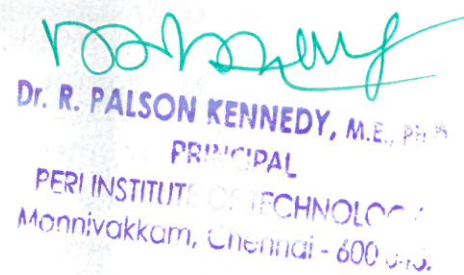 Dr. R. PALSON KENNEDY, M.E., Ph.D
PRINCIPAL
PERI INSTITUTE OF TECHNOLOGY
Mannivakkam, Chennai - 600